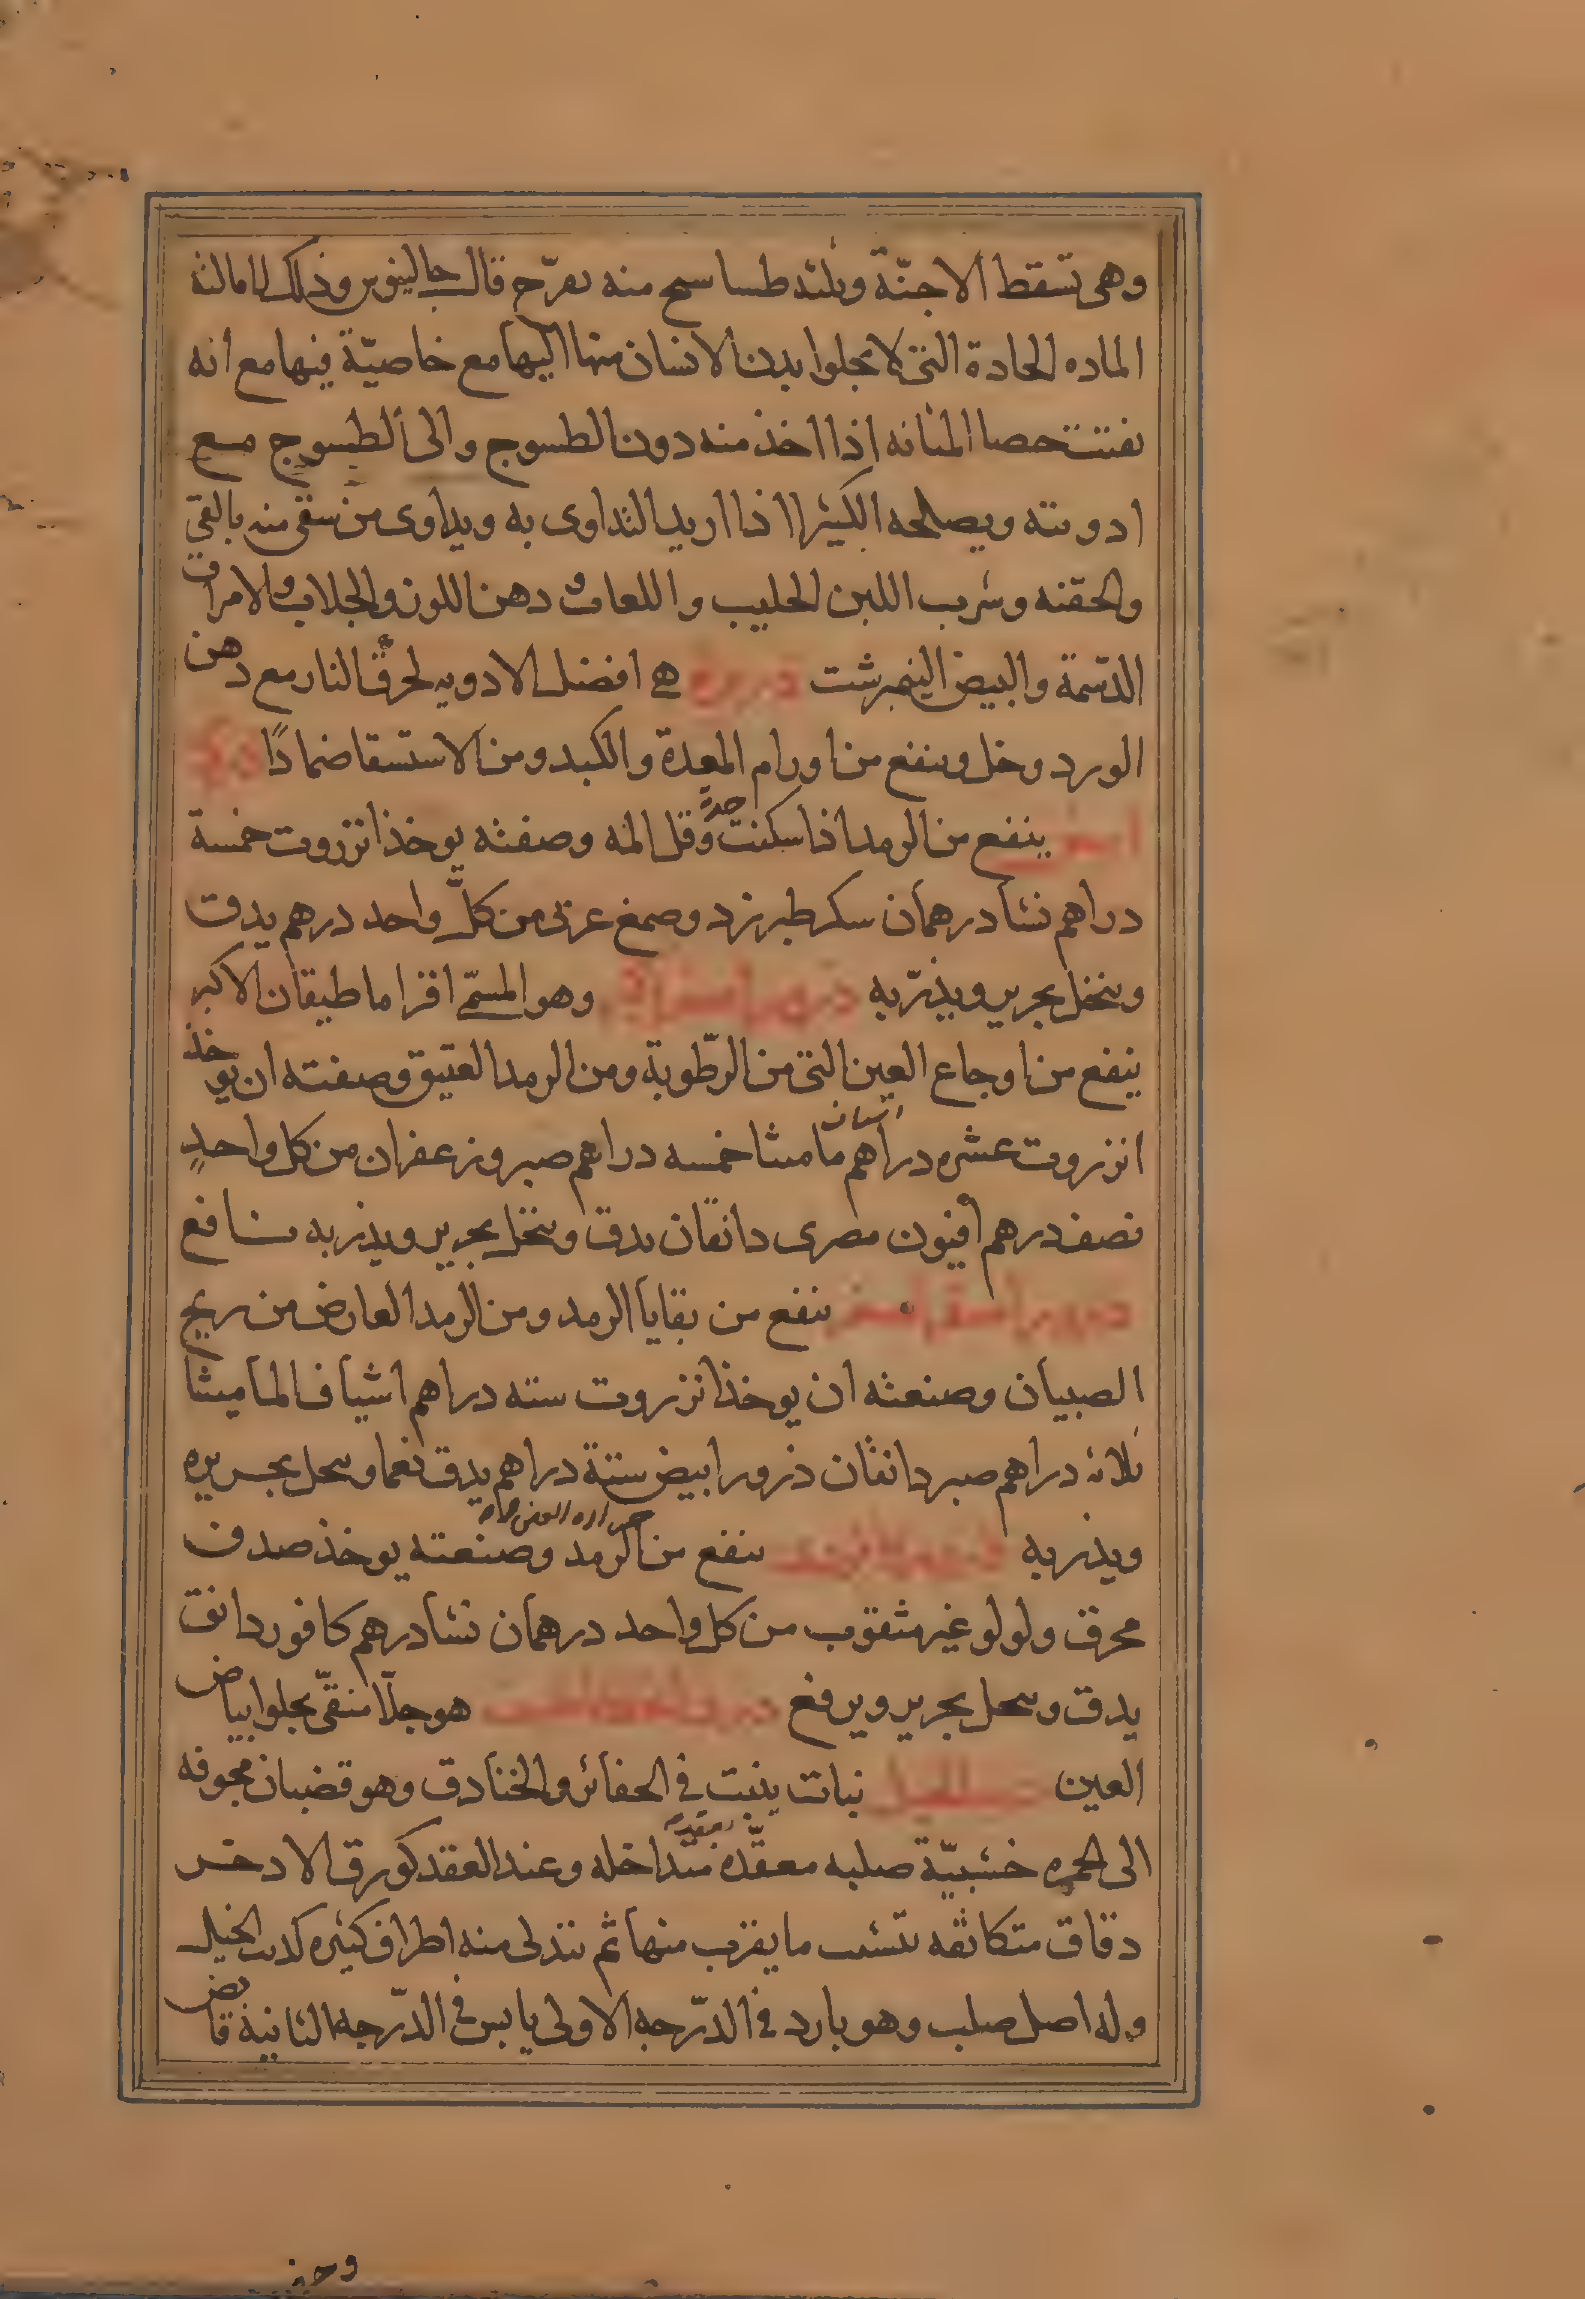 وهى تسقط الاجنّة وثلثه طساسيج منه تقرّح قال جالينوس وذلك لامالته
الماده الحادة التى لا يخلوا بدن الانسان منها اليها مع خاصيّة فيها مع انه
يفتت حصا المثانه اذا اخذ منه دون الطسوج والى الطسوج مع
ادويته ويصلحه الكثيرا اذا اريد التداوى به ويداوى من سقى منه بالقى
والحقنه وشرب اللبن الحليب واللعاب ودهن اللوز والجلاب والامراق
الدسمة والبيض النيمبرشت هى افضل الادويه لحرق النار مع دهن
الورد وخل وينفع من اورام المعدة والكبد ومن الاستسقا ضمادًا
ينفع من الرمد اذا سكنت حدته وقل المه وصفته يوخذ انزروت خمسة
دراهم نشا درهمان سكر طبرزد وصمغ عربى من كلّ واحد درهم يدق
وينخل بحرير ويذرّ به ذرور اصفر وهو المسمّى اقراماطيقان الاكبر
ينفع من اوجاع العين التى من الرّطوبة ومن الرمد العتيق وصفته ان يوخذ
انزروت عشره دراهم مامشا خمسه دراهم صبر وزعفران من كل واحدٍ
نصف درهم أفيون مصرى دانقان يدق وينخل بحرير ويذر به منافع
ذرور اصفر ينفع من بقايا الرمد ومن الرمد العارض من ريح
الصبيان وصنعته ان يوخذ انزروت سته دراهم اشياف الماميشا
ثلاثه دراهم صبر دانقان ذرور ابيض ستة دراهم يدق نعما وينخل بحريره
ويذر به ينفع من الرمد وصنعته يوخذ صدف
محرق ولولو غير مثقوب من كل واحد درهمان نشا درهم كافور دانق
يدق وينخل بحرير ويرفع هو جلّا منقّى يجلوا بياض
العين نبات ينبت فى الحفائر والخنادق وهو قضبان مجوفه
الى الحمره خشبيّة صلبه معقّده متداخله وعند العقد كورق الادخر
دقاق متكاثفه تتشبث ما يقرب منها ثم تتدلى منه اطراف كثيره كذنب الخيل
وله اصل صلب وهو بارد فى الدّرجه الاولى يابس فى الدّرجه الثانية قابض